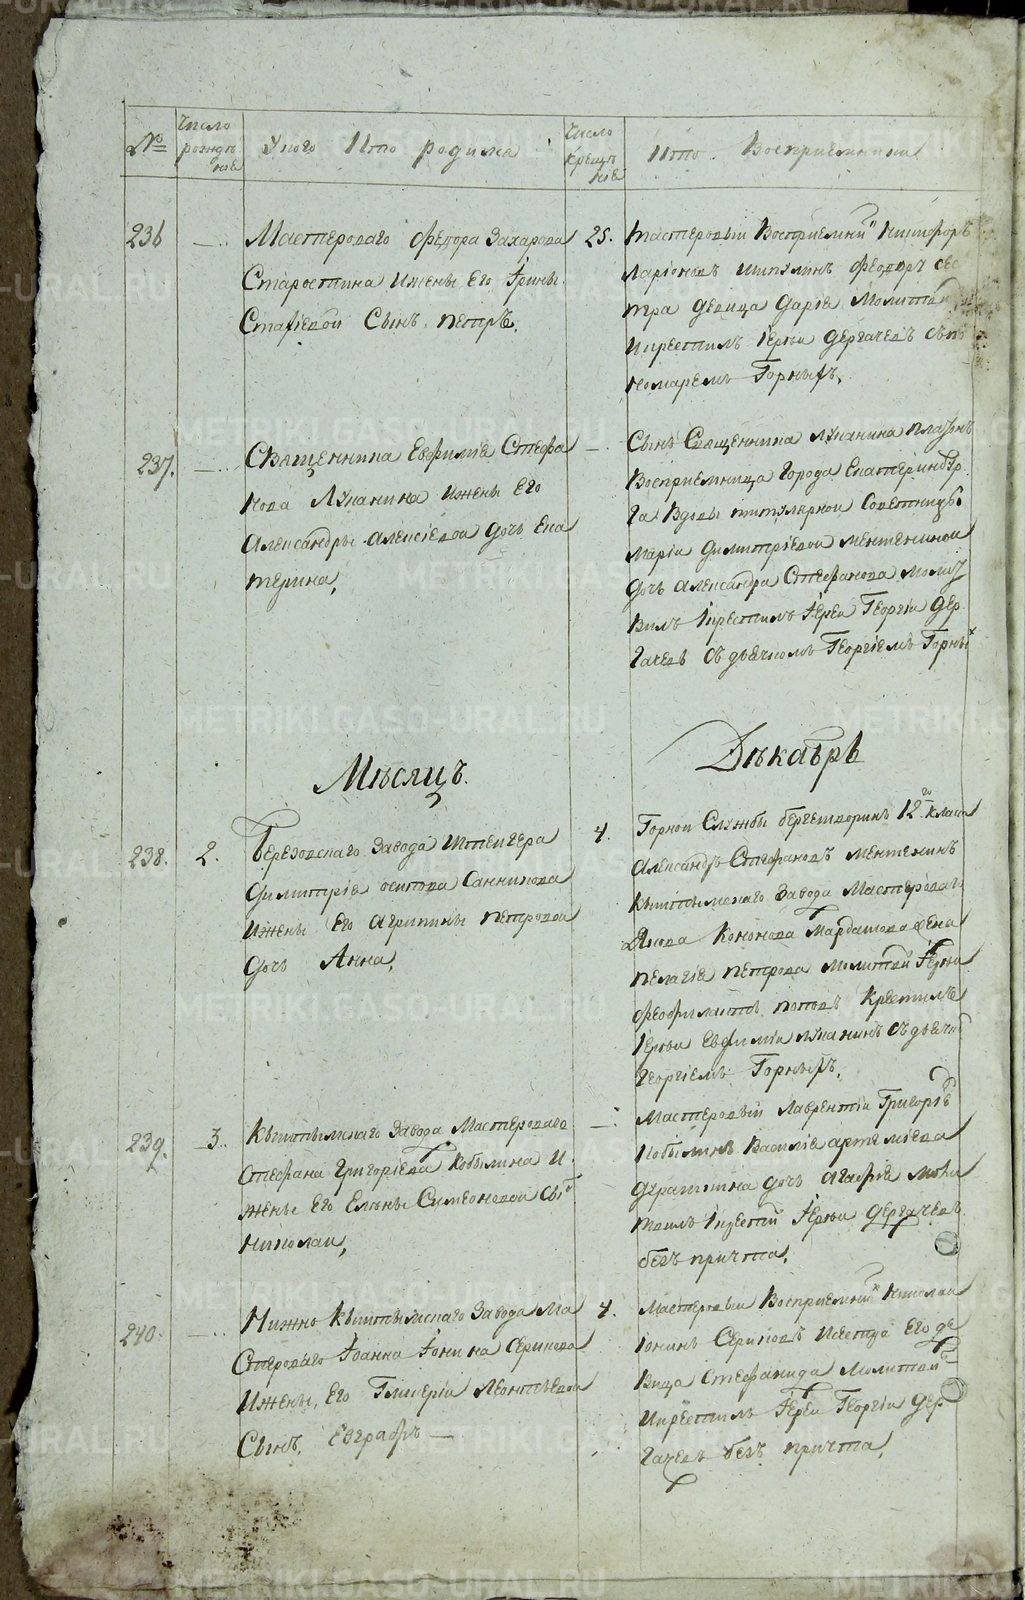 № Число рожденiе Укого Икто родился Число крещенiе Икто Воспрiемники
236 — Мастероваго Федора Захарова
Старостина ижены Его Ирины
Стахiевой Сынъ Петръ,
25. Мастеровый Воспрiемникъ Никифоръ
Ларiоновъ Шипулинъ Феодоръ сес
тра девица Дарiя Молитвой
икрестилъ Iереи Дергачевъ съ по
номаремъ Горныхъ,
237. — Священника Евфимiя Стефа
нова Луканина ижены Его
Александры Алексiевой дочь Ека
терина,
— Сынъ Священника Луканина Платонъ
Воспрiемница Города Екатеринбур
га Вдовы титулярной Советницы
Марiи Димитрiевой Ментениной
дочь Александра Стефанова молит
вилъ Крестилъ Iереи Георгiи Дер
гачевъ съ дьячкомъ Георгiемъ Горных
Месяцъ Декабрь
238. 2. Березовскаго Завода Штейгера
Димитрiя Осипова Санникова
ижены Его Агрипины Петровой
дочь Анна,
4. Горной Службы бергешворинъ 12го класа
Александръ Стефановъ Ментенинъ
Кыштымскаго Завода Мастероваго
Якова Кононова Мардашова жена
Пелагiя Петрова молитвой Iереи
Феофилактъ Поповъ Крестилъ
Iереи Евфимiи Луканинъ съ дьячко
Георгiемъ Горныхъ,
239. 3. Кыштымскаго Завода Мастероваго
Стефана Григорiева Кобылина и
жены Его Елены Симеоновой сынъ
Николаи,
— Мастеровый Лаврентiи Григорiевъ
Кобылинъ Василiя Артемiева
дочь Агафiя моли
твилъ Iереи Дергачевъ
безъ причта,
240. — Нижне Кыштымскаго Завода Ма
стероваго Iоанна Iонина Серикова
ижены, Его Гликерiи Леонтьевой
Сынъ, Евграфъ —
4. Мастеровый Воспрiемникъ Николаи
Iонинъ Сериковъ Исестра Его де
вица Стефанида Молитвой
икрестилъ Iереи Георгiи Дер
гачевъ безъ причта,
METRIKI.GASO-URAL.RU